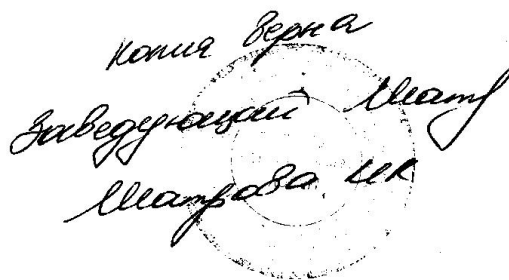 Копия верна
Заведующий
Шатрова ИК